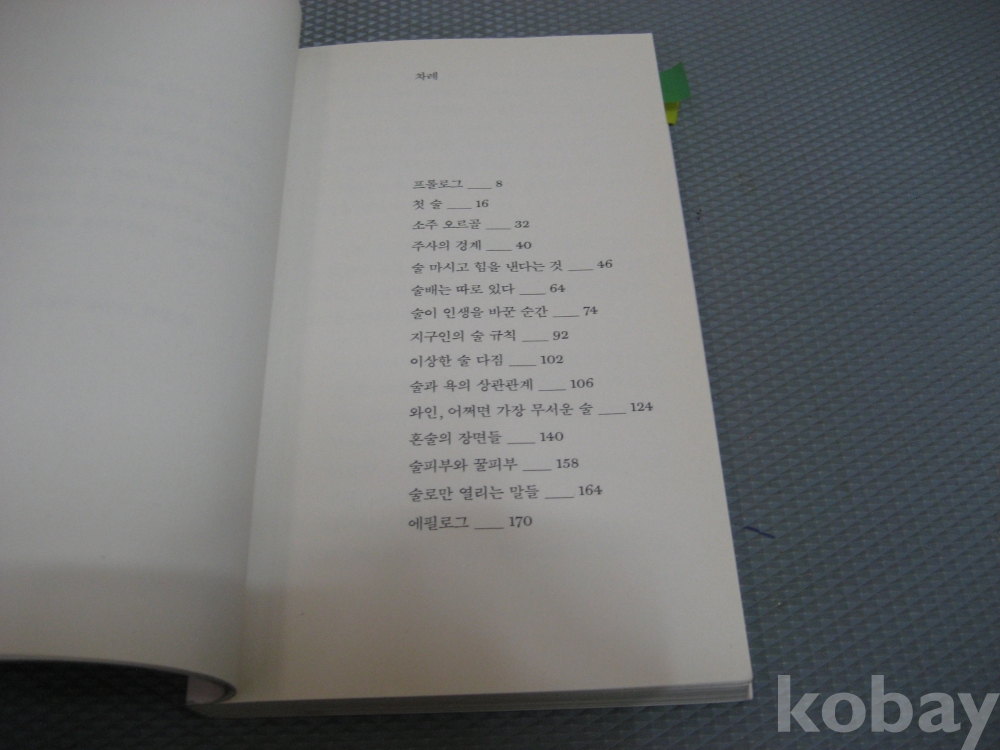 차례
프롤로그 ___ 8
첫 술 ___ 16
소주 오르골 ___ 32
주사의 경계 ___ 40
술 마시고 힘을 낸다는 것 ___ 46
술배는 따로 있다 ___ 64
술이 인생을 바꾼 순간 ___ 74
지구인의 술 규칙 ___ 92
이상한 술 다짐 ___ 102
술과 욕의 상관관계 ___ 106
와인, 어쩌면 가장 무서운 술 ___ 124
혼술의 장면들 ___ 140
술피부와 꿀피부 ___ 158
술로만 열리는 말들 ___ 164
에필로그 ___ 170
kobay